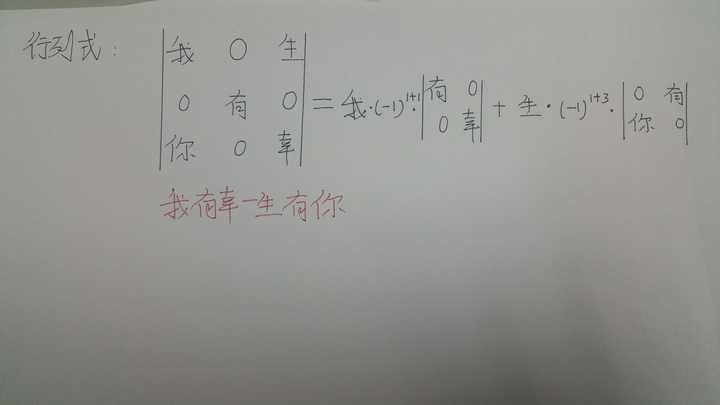 行列式: |我 0 生; 0 有 0; 你 0 幸| = 我·(-1)^{1+1}·|有 0; 0 幸| + 生·(-1)^{1+3}·|0 有; 你 0|
我有幸一生有你